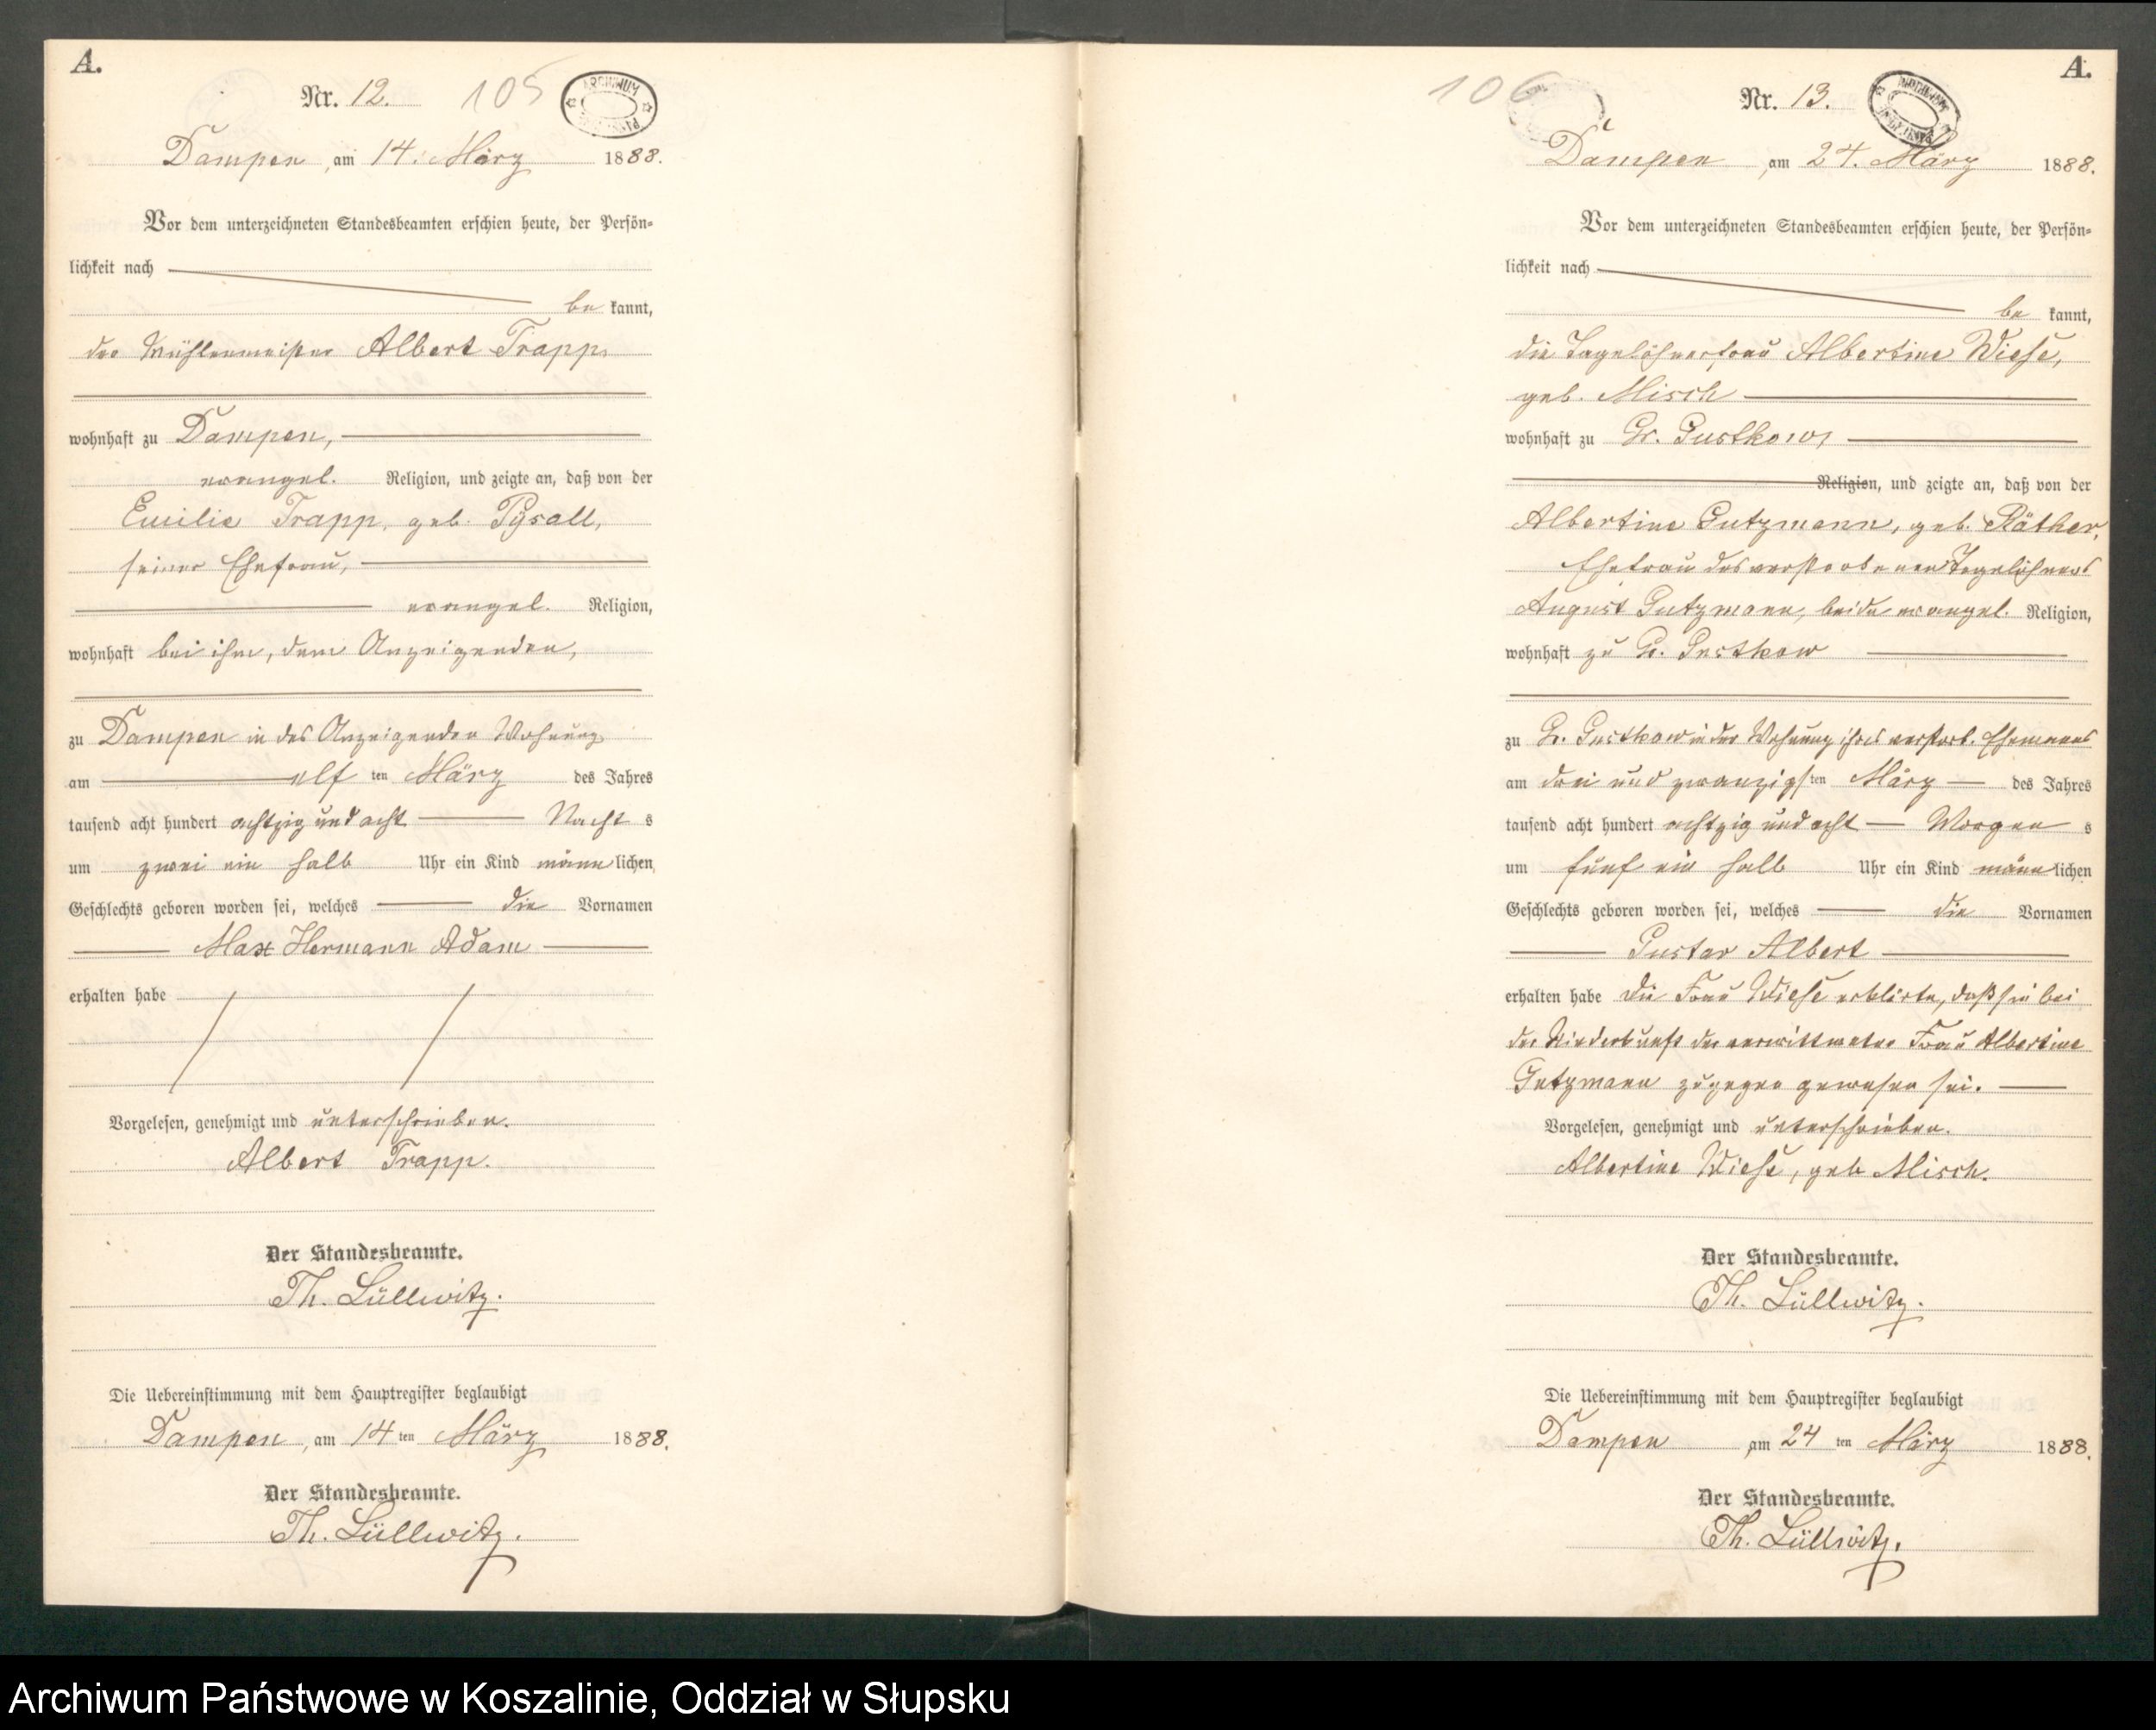 A.
Nr. 12. 105
ARCHIWUM
Dampen, am 14. März 1888.
Vor dem unterzeichneten Standesbeamten erschien heute, der Persön-
lichkeit nach
be kannt,
der Mühlenmeister Albert Trapp,
wohnhaft zu Dampen,
evangel. Religion, und zeigte an, daß von der
Emilie Trapp, geb. Pysall,
seiner Ehefrau,
evangel. Religion,
wohnhaft bei ihm, dem Anzeigenden,
zu Dampen in des Anzeigenden Wohnung
am elf ten März des Jahres
tausend acht hundert achtzig und acht Nacht s
um zwei ein halb Uhr ein Kind männ lichen
Geschlechts geboren worden sei, welches die Vornamen
Max Hermann Adam
erhalten habe
Vorgelesen, genehmigt und unterschrieben.
Albert Trapp.
Der Standesbeamte.
Th. Lüllwitz.
Die Uebereinstimmung mit dem Hauptregister beglaubigt
Dampen, am 14 ten März 1888.
Der Standesbeamte.
Th. Lüllwitz.
A.
106 Nr. 13.
Dampen, am 24. März 1888.
Vor dem unterzeichneten Standesbeamten erschien heute, der Persön-
lichkeit nach
be kannt,
die Tagelöhnerfrau Albertine Wiese,
geb. Misch
wohnhaft zu Gr. Gustkow,
Religion, und zeigte an, daß von der
Albertine Gutzmann, geb. Räther,
Ehefrau des verstorbenen Tagelöhners
August Gutzmann, beide evangel. Religion,
wohnhaft zu Gr. Gustkow
zu Gr. Gustkow in der Wohnung ihres verstorb. Ehemannes
am drei und zwanzigsten März des Jahres
tausend acht hundert achtzig und acht Morgen s
um fünf ein halb Uhr ein Kind männ lichen
Geschlechts geboren worden sei, welches die Vornamen
Gustav Albert
erhalten habe Die Frau Wiese erklärte, daß sie bei
der Niederkunft der verwittweten Frau Albertine
Gutzmann zugegen gewesen sei.
Vorgelesen, genehmigt und unterschrieben.
Albertine Wiese, geb Misch.
Der Standesbeamte.
Th. Lüllwitz.
Die Uebereinstimmung mit dem Hauptregister beglaubigt
Dampen am 24 ten März 1888.
Der Standesbeamte.
Th. Lüllwitz.
Archiwum Państwowe w Koszalinie, Oddział w Słupsku